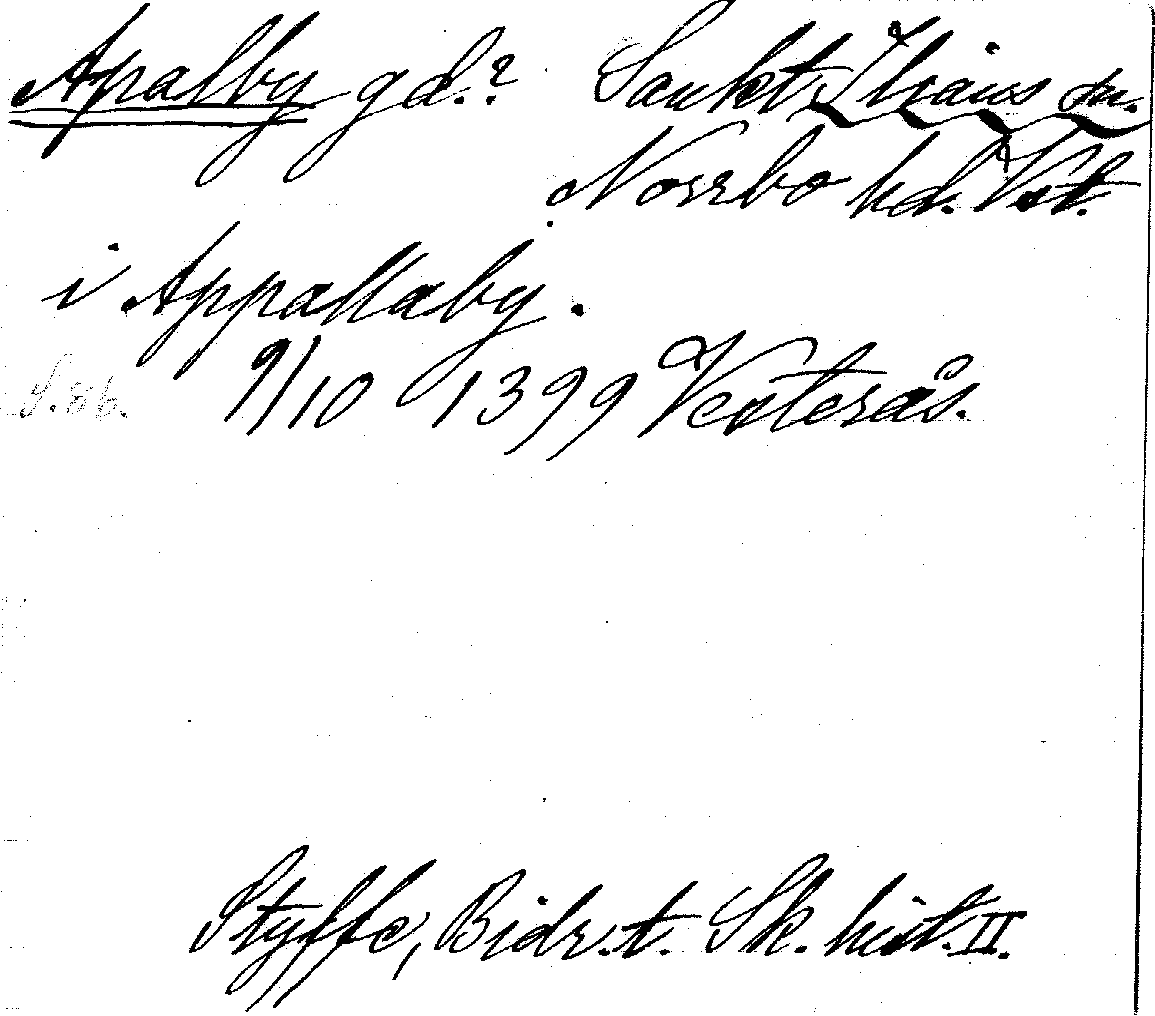 Apalby gd.? Sankt Ilians sn.
Norrbo hd. Vstm.
i Appallaby.
S. 86. 9/10 1399 Vesterås.
Styffe, Bidr. t. Sk. hist. II.